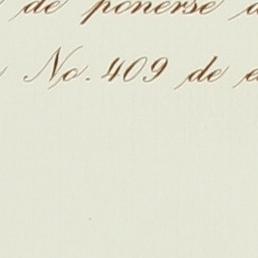 de ponerse
No. 409 de